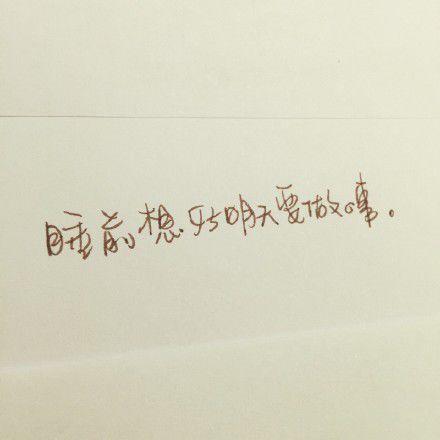 睡前想好明天要做的事。